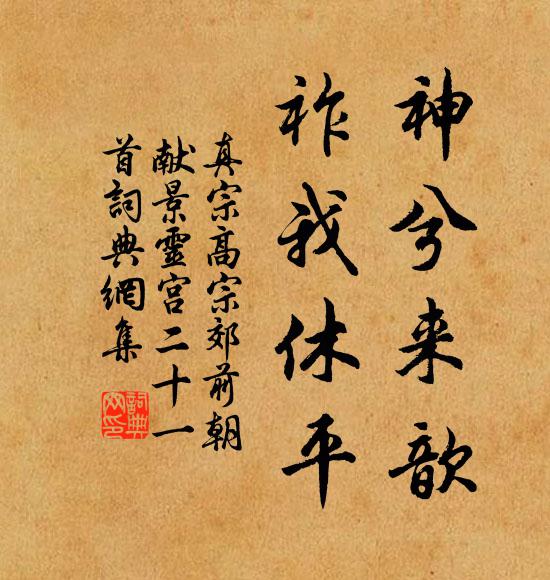 神兮来歆
祚我休平
真宗高宗郊前朝
献景靈宫二十一
首詞典網集
詞典
网印